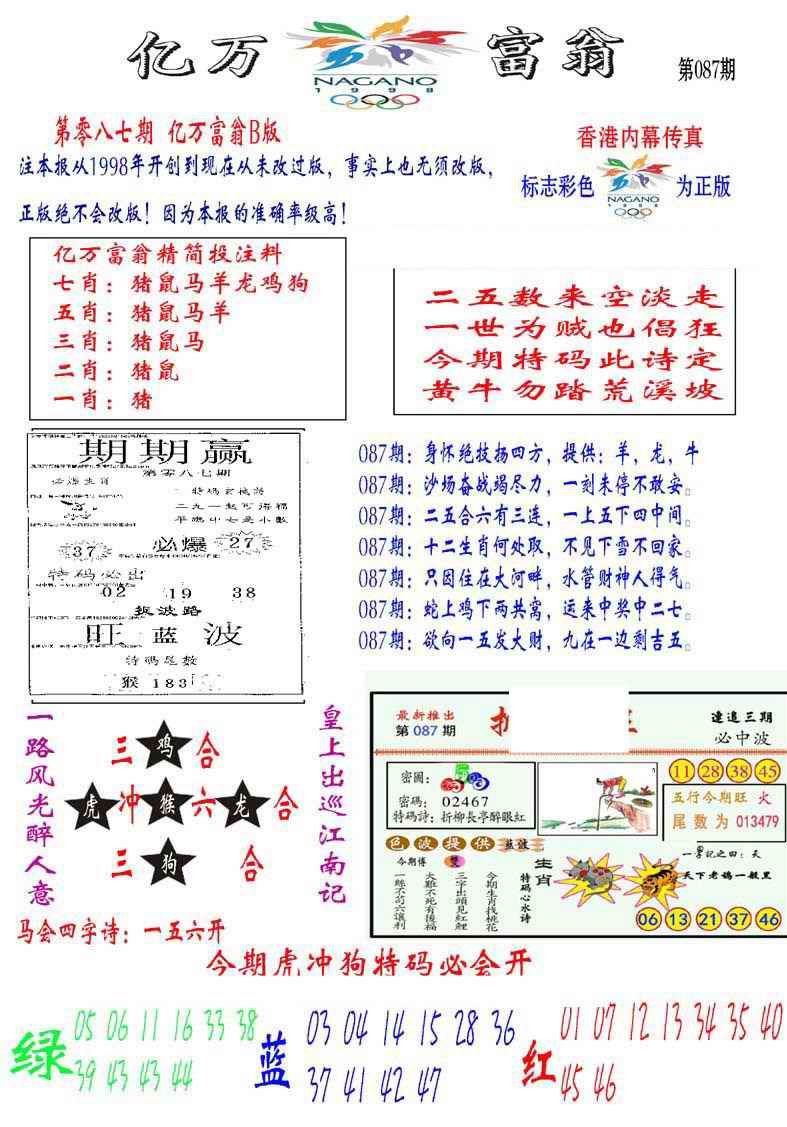 亿万富翁
NAGANO
1998
第087期
第零八七期 亿万富翁B版
香港内幕传真
注本报从1998年开创到现在从未改过版，事实上也无须改版，
正版绝不会改版！因为本报的准确率级高！
标志彩色
NAGANO
1998
为正版
亿万富翁精简投注料
七肖：猪鼠马羊龙鸡狗
五肖：猪鼠马羊
三肖：猪鼠马
二肖：猪鼠
一肖：猪
二五数来空淡走
一世为贼也倡狂
今期特码此诗定
黄牛勿踏荒溪坡
期期赢
第零八七期
必爆生肖
37
必爆
27
特码必出
02 19 38
捉波路
旺蓝波
特码尾数
猴183
087期：身怀绝技扬四方，提供：羊，龙，牛
087期：沙场奋战竭尽力，一刻未停不敢安。
087期：二五合六有三连，一上五下四中间。
087期：十二生肖何处取，不见下雪不回家。
087期：只因住在大河畔，水管财神人得气。
087期：蛇上鸡下两共窝，运来中奖中二七。
087期：欲向一五发大财，九在一边剩吉五。
一路风光醉人意
三鸡合
虎冲猴六龙合
三狗合
皇上出巡江南记
马会四字诗：一五六开
最新推出
第087期
連追三期
必中波
密圖：
密碼：02467
特碼詩：折柳長亭醉眼紅
11 28 38 45
五行今期旺 火
尾数为 013479
色波提供 蓝波
今期博 雙
一絲不苟六讓利
大難不死有後福
三字出頭見紅鯉
今期生肖找桃花
特码心水诗
生肖
一字記之曰：天
天下老鴉一般黑
06 13 21 37 46
今期虎冲狗特码必会开
绿
05 06 11 16 33 38
39 43 43 44
蓝
03 04 14 15 28 36
37 41 42 47
红
01 07 12 13 34 35 40
45 46